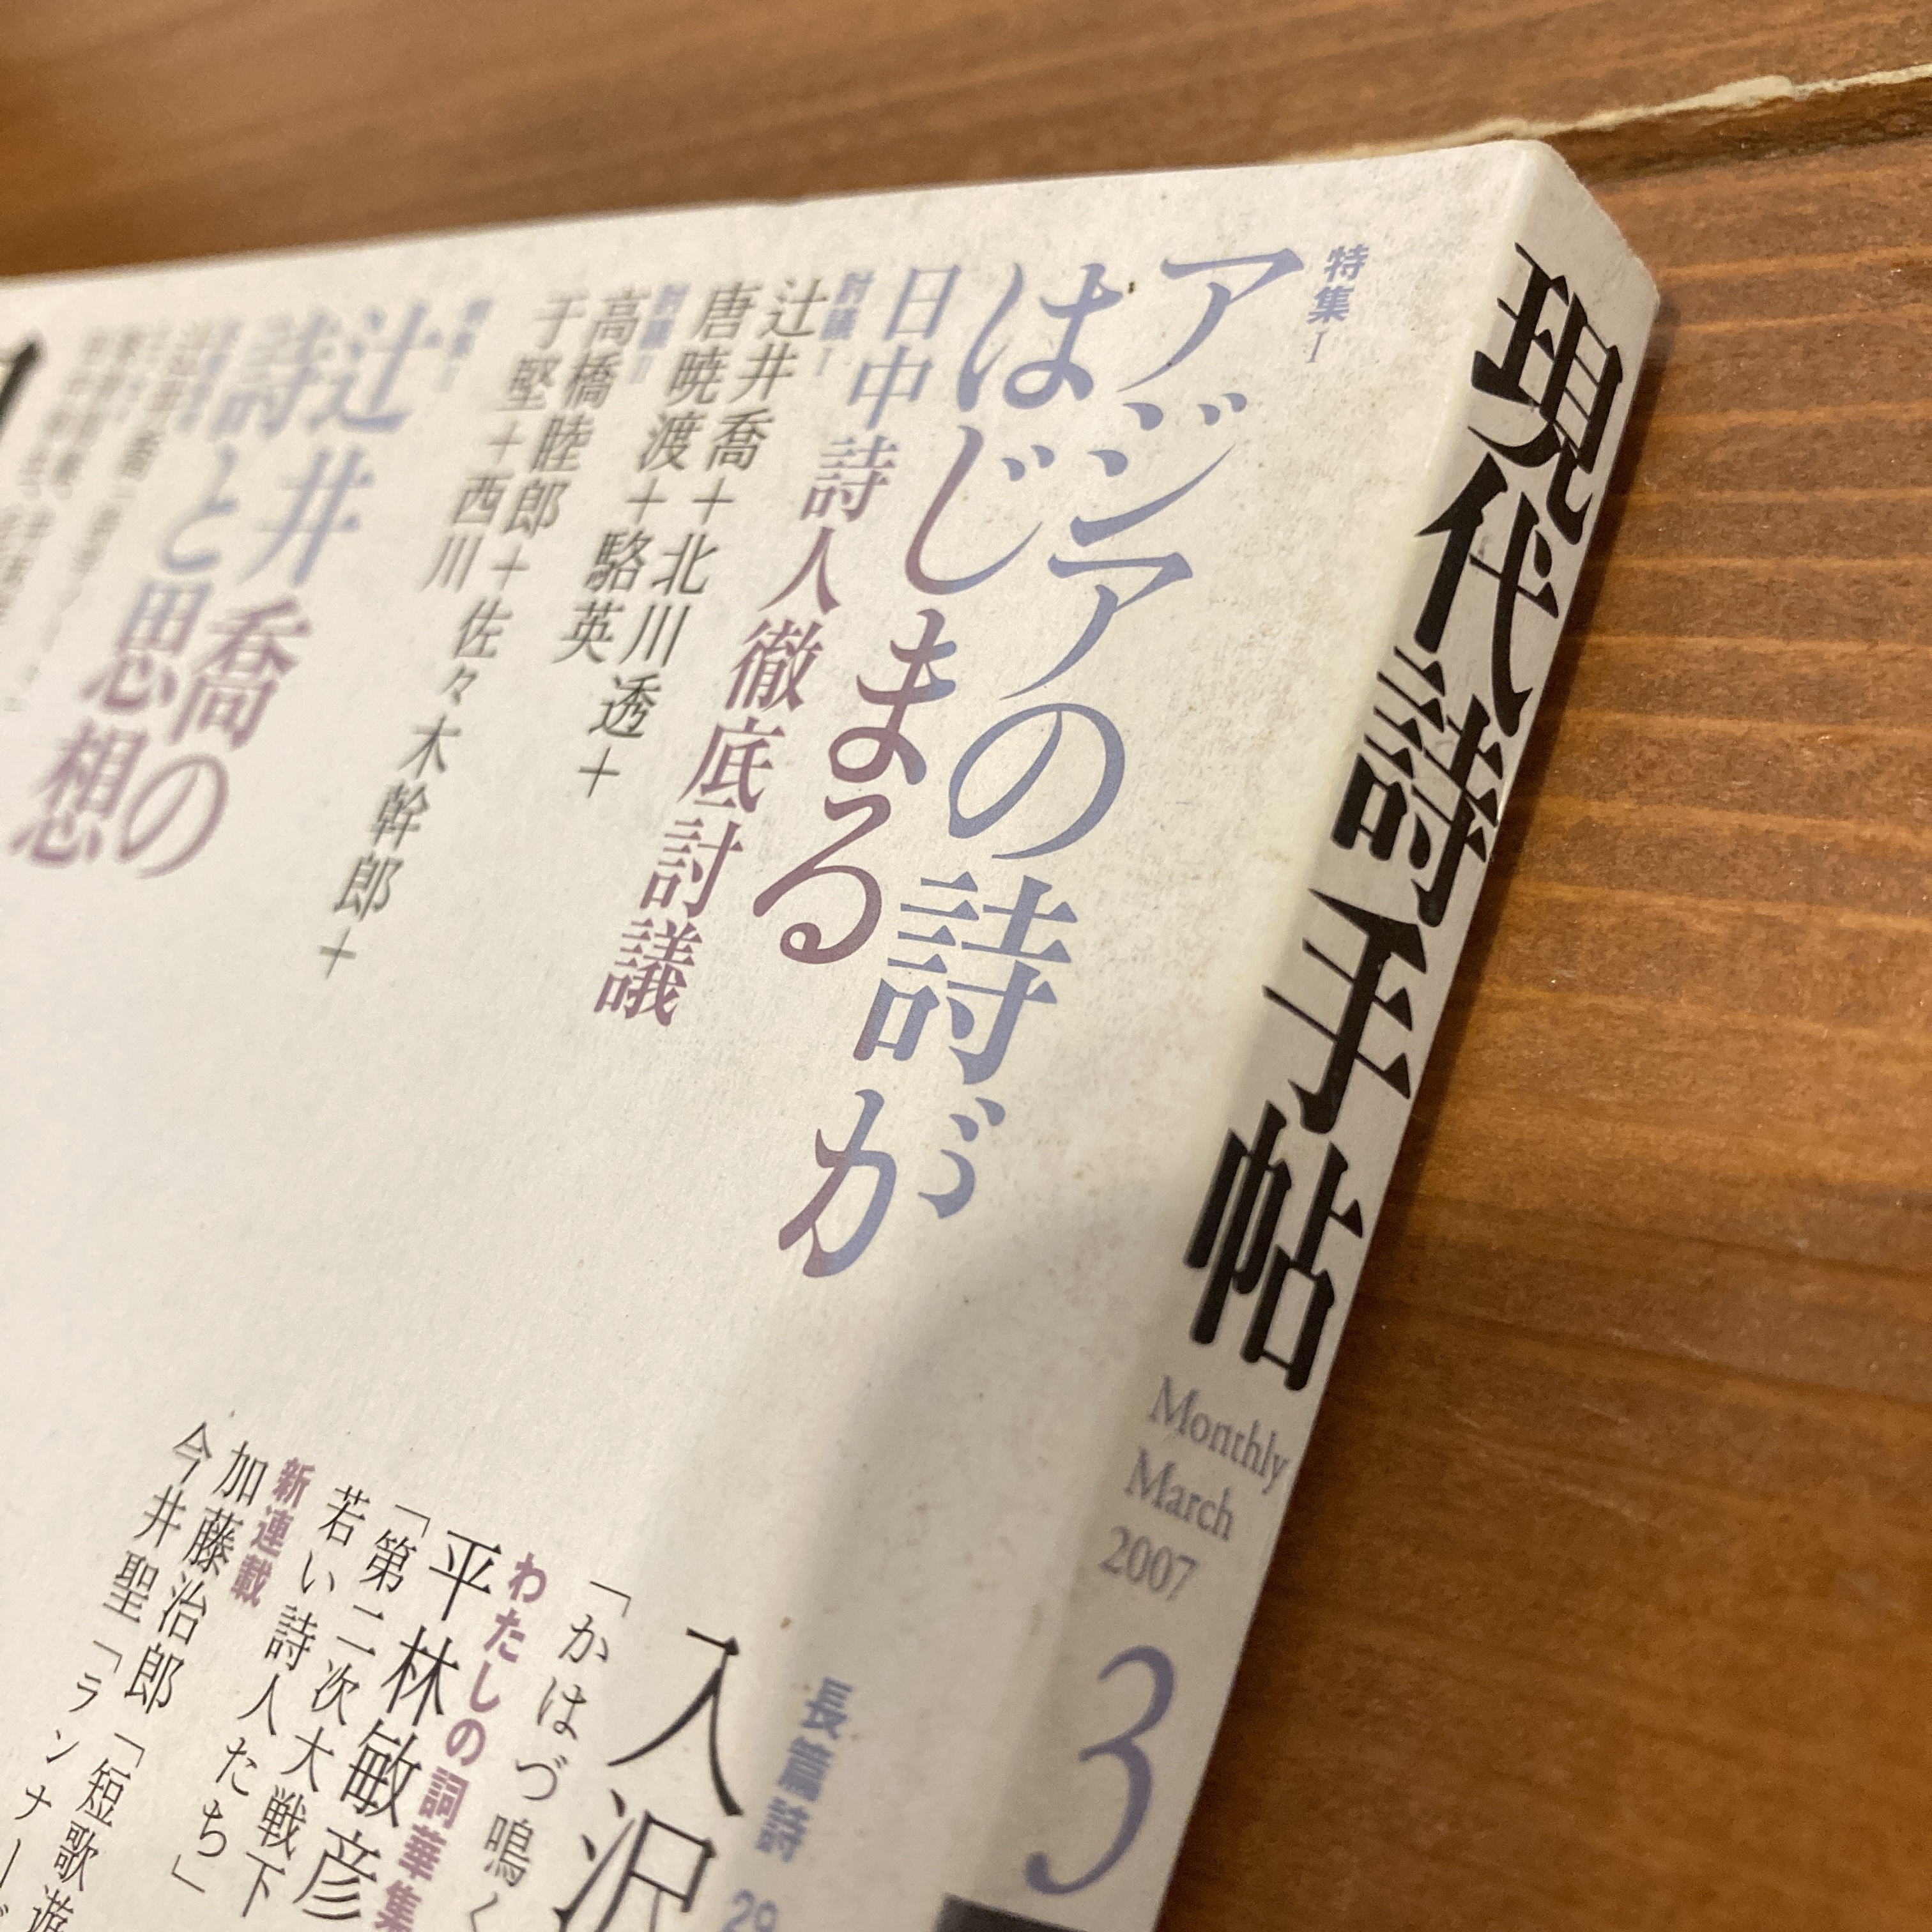 現代詩手帖
Monthly
March
2007
3
特集I
アジアの詩が
はじまる
日中詩人徹底討議
討議I
辻井喬+北川透+
唐暁渡+駱英
討議II
高橋睦郎+佐々木幹郎+
于堅+西川
辻井喬の
詩と思想
長篇詩
29
入沢
「かはづ鳴く
わたしの詞華集
平林敏彦
「第二次大戦下
若い詩人たち」
新連載
加藤治郎「短歌遊
今井聖「ランナー